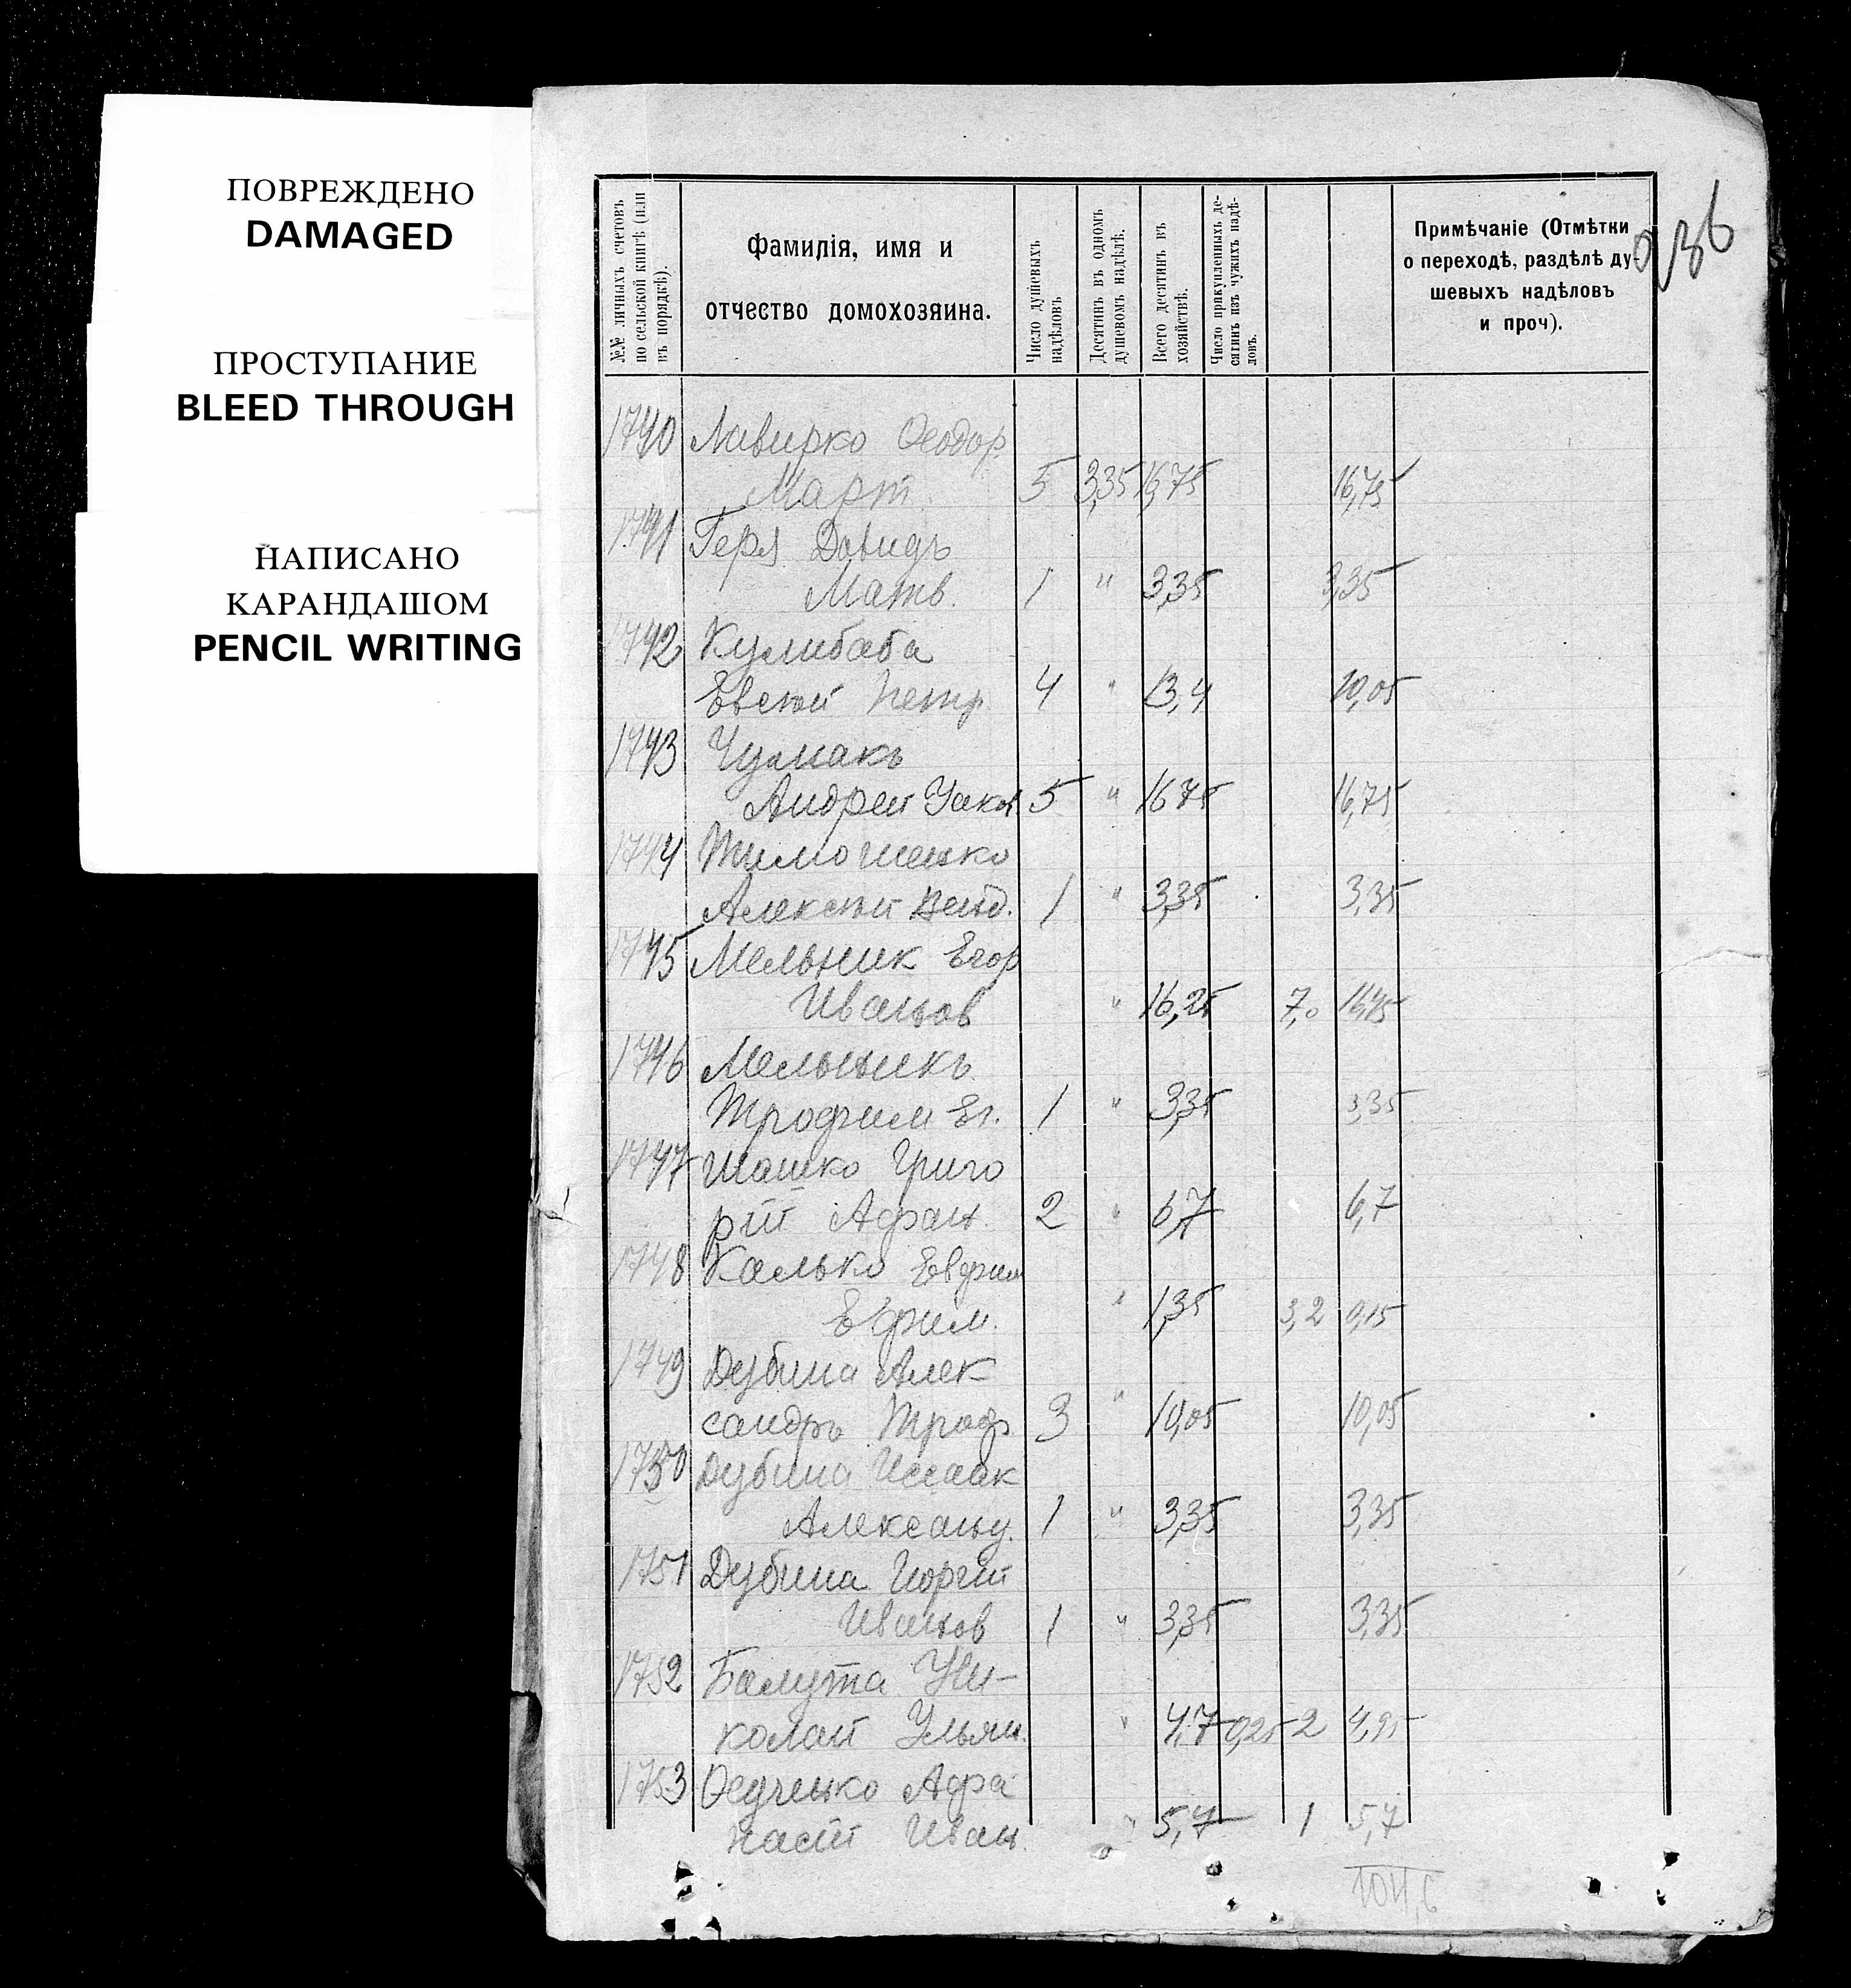 ПОВРЕЖДЕНО
DAMAGED
ПРОСТУПАНИЕ
BLEED THROUGH
НАПИСАНО
КАРАНДАШОМ
PENCIL WRITING
№№ личныхъ счетовъ
по сельской книгѣ (или
въ порядкѣ).
Фамилія, имя и
отчество домохозяина.
Число душевыхъ
надѣловъ
Десятинъ въ одномъ
душевомъ надѣлѣ.
Всего десятинъ въ
хозяйствѣ.
Число прикупленныхъ де-
сятинъ изъ чужихъ надѣ-
ловъ.
Примѣчаніе (Отмѣтки
о переходѣ, раздѣлѣ ду-
шевыхъ надѣловъ
и проч).
36
1740 Лавирко Ѳеодор
Март. 5 3,35 16,75 16,75
1741 Геря Давидъ
Матв. 1 " 3,35 3,35
1742 Кулибаба
Евсѣй Петр 4 " 13,4 10,05
1743 Чумакъ
Андрей Яков. 5 " 16,75 16,75
1744 Тимошенко
Алексѣй 1 " 3,35 3,35
1745 Мельник Егор
Иванов " 16,25 7,0
1746 Мельникъ
Трофим Ег. 1 " 3,35 3,35
1747 Шашко Григо
рій Афан. 2 " 6,7 6,7
1748 Калько Евфим
Ефим. " 1,35 3,2 0,15
1749 Дубина Алек
сандръ Троф. 3 " 10,05 10,05
1750 Дубина Иссаак
Александ. 1 " 3,35 3,35
1751 Дубина Георгій
Иванов 1 " 3,35 3,35
1752 Балута Ни-
колай Ульян. " 4,7 0,25 2 4,95
1753 Осученко Афа
насій Иван. " 5,7 1 5,7